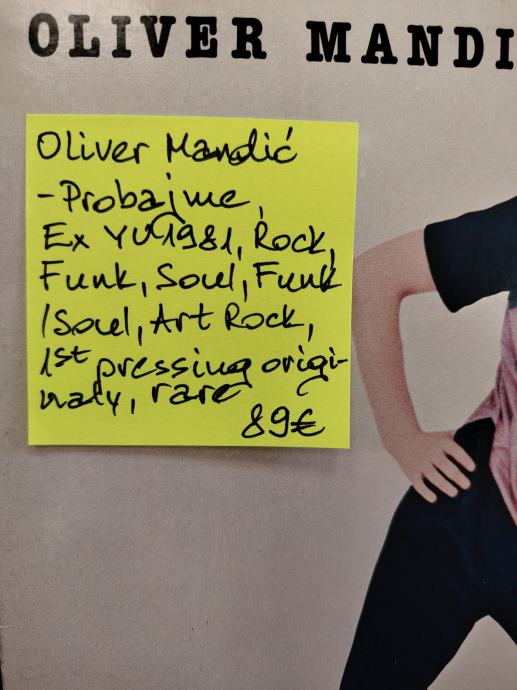 OLIVER MANDI
Oliver Mandić
-Probajme,
Ex YU1981, Rock,
Funk, Soul, Funk
/Soul, Art Rock,
1st pressing origi-
naly, rare
89€